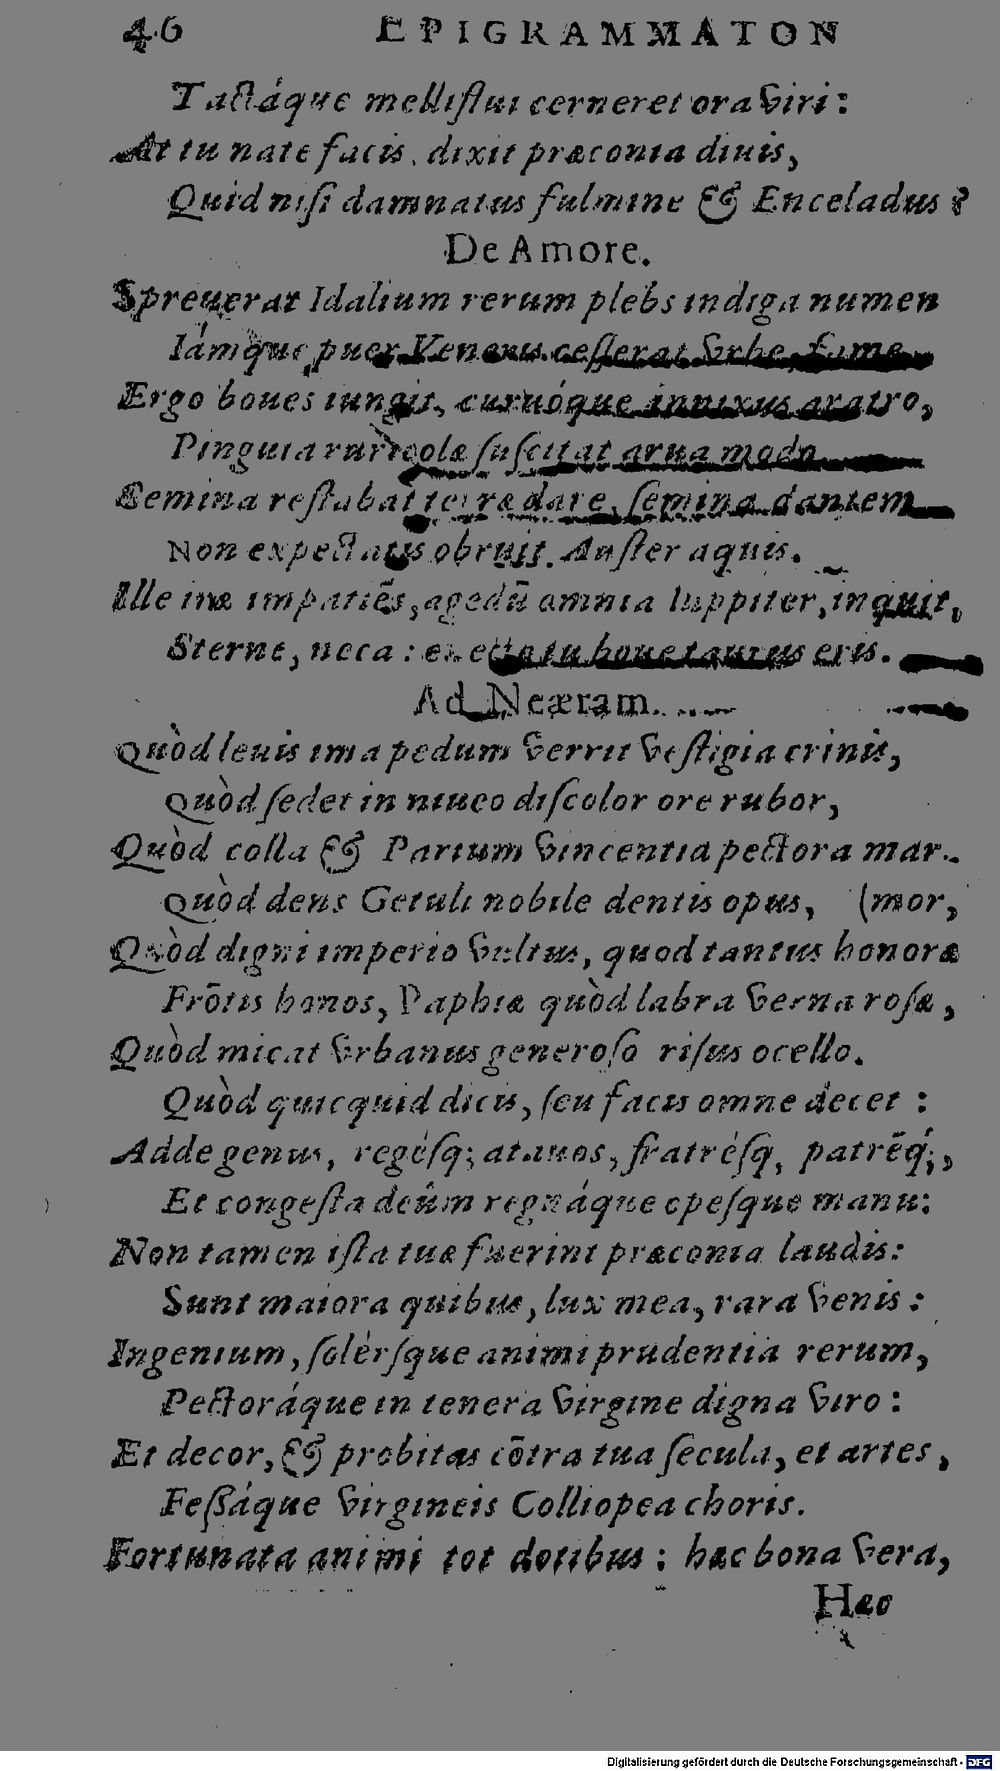 46 EPIGRAMMATON
Tactáque melliflui cerneret ora viri:
At tu nate facis, dixit præconia diuis,
Quid nisi damnatus fulmine & Enceladus?
De Amore.
Spreuerat Idalium rerum plebs indiga numen
Iámque puer Veneris cesserat vrbe, fame
Ergo boues iungit, curuóque innixus aratro,
Pinguia ruricolæ suscitat arua modo
Semina restabat terræ dare, semina dantem
Non expectatis obruit Auster aquis.
Ille iræ impatiẽs, agedũ omnia Iuppiter, inquit,
Sterne, neca: eiecto tu boue taurus eris.
Ad Neæram.
Quòd leuis ima pedum verrit vestigia crinis,
Quòd sedet in niueo discolor ore rubor,
Quòd colla & Parium vincentia pectora mar-
Quòd dens Getuli nobile dentis opus, (mor,
Quòd digni imperio vultus, quod tantus honoræ
Frõtis honos, Paphiæ quòd labra verna rosæ,
Quòd micat vrbanus generoso risus ocello.
Quòd quicquid dicis, seu facis omne decet:
Adde genus, regésq; atauos, fratrésq, patrẽq;,
Et congesta deûm regnáque opesque manu:
Non tamen ista tuæ fuerint præconia laudis:
Sunt maiora quibus, lux mea, rara venis:
Ingenium, solérsque animi prudentia rerum,
Pectoráque in tenera virgine digna viro:
Et decor, & probitas cõtra tua secula, et artes,
Fessáque virgineis Colliopea choris.
Fortunata animi tot dotibus: hæc bona vera,
Hæo
Digitalisierung gefördert durch die Deutsche Forschungsgemeinschaft - DFG